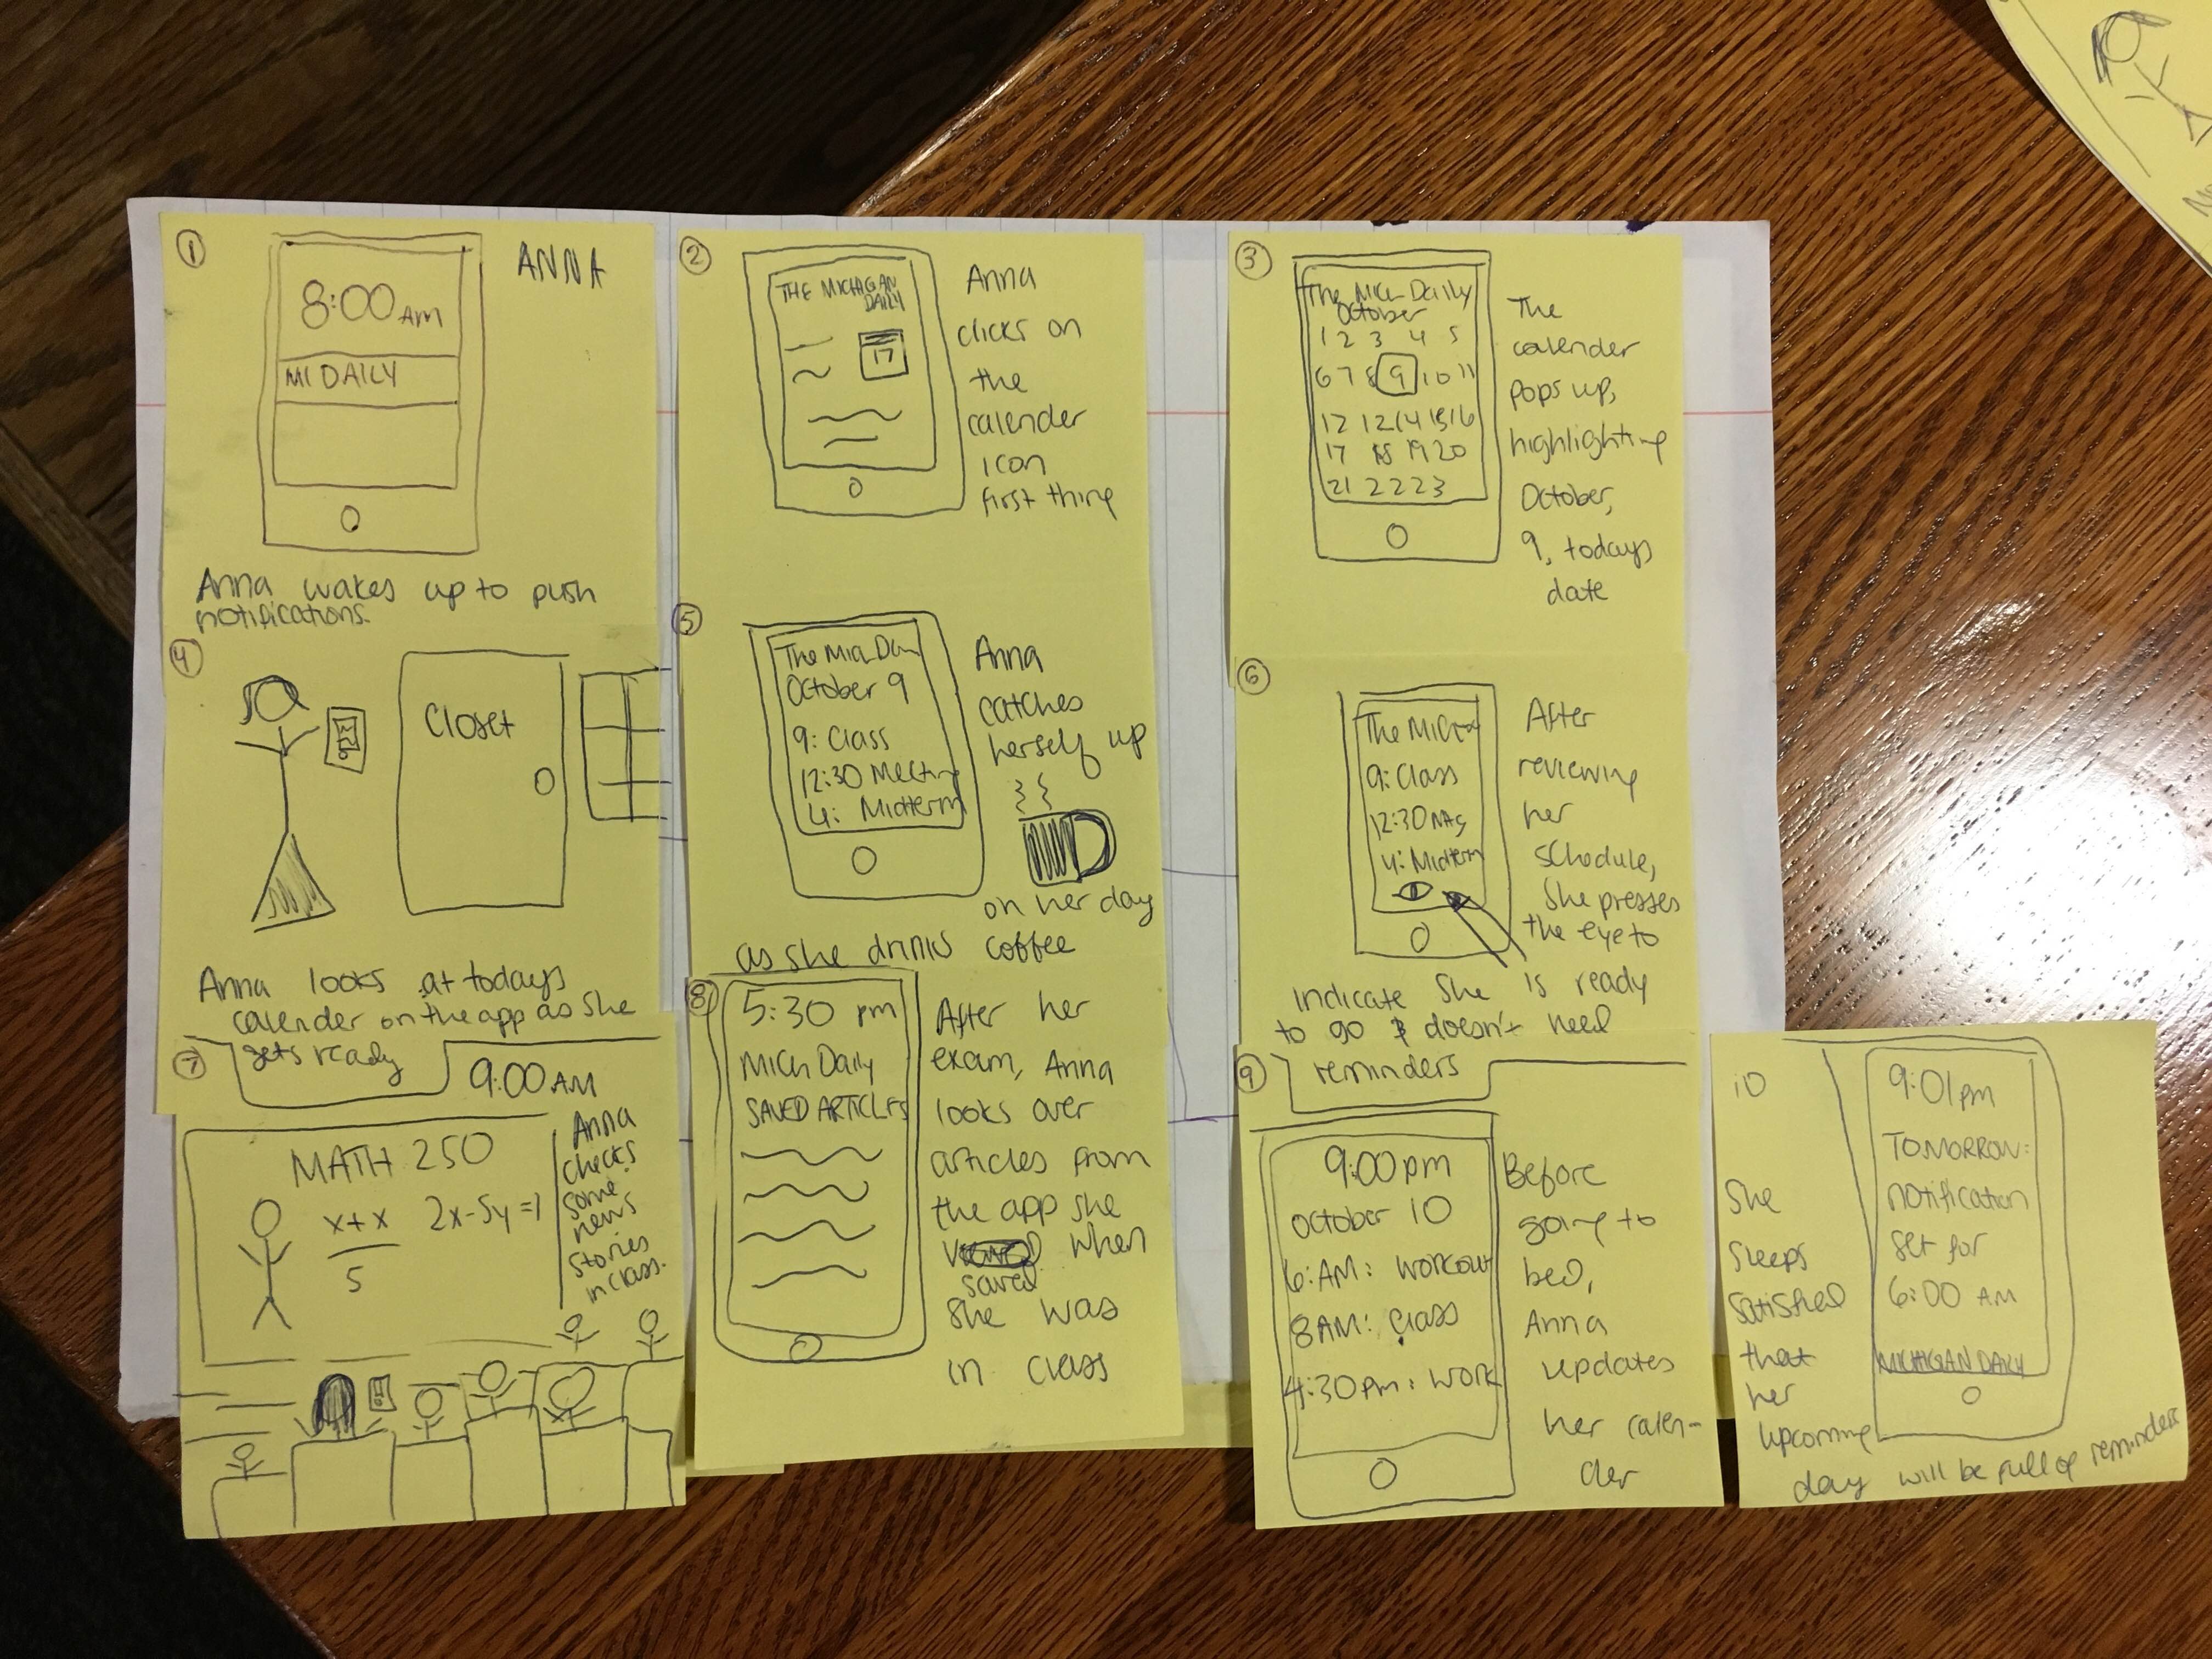 1
ANNA
8:00 AM
MI DAILY
Anna wakes up to push
notifications.
2
THE MICHIGAN
DAILY
17
Anna
clicks on
the
calender
icon
first thing
3
The Mich Daily
October
1 2 3 4 5
6 7 8 9 10 11
12 12 14 15 16
17 18 19 20
21 22 23
The
calender
pops up,
highlighting
October,
9, todays
date
4
Closet
Anna looks at todays
calender on the app as she
gets ready
5
The Mich Dai
October 9
9: Class
12:30 Meeting
4: Midterm
Anna
catches
herself up
on her day
as she drinks coffee
6
The Mich
9: Class
12:30 Mtg
4: Midterm
After
reviewing
her
schedule,
She presses
the eye to
indicate she is ready
to go & doesn't need
reminders
7
9:00 AM
MATH 250
x+x
5
2x-5y=1
Anna
checks
some
news
stories
in class.
8
5:30 pm
Mich Daily
SAVED ARTICLES
After her
exam, Anna
looks over
articles from
the app she
saved when
she was
in class
9
9:00 pm
October 10
6:AM: WORKOUT
8AM: class
4:30pm: WORK
Before
going to
bed,
Anna
updates
her calen-
der
10
9:01pm
TOMORROW:
notification
set for
6:00 AM
MICHIGAN DAILY
She
sleeps
satisfied
that
her
upcoming
day will be full of reminders